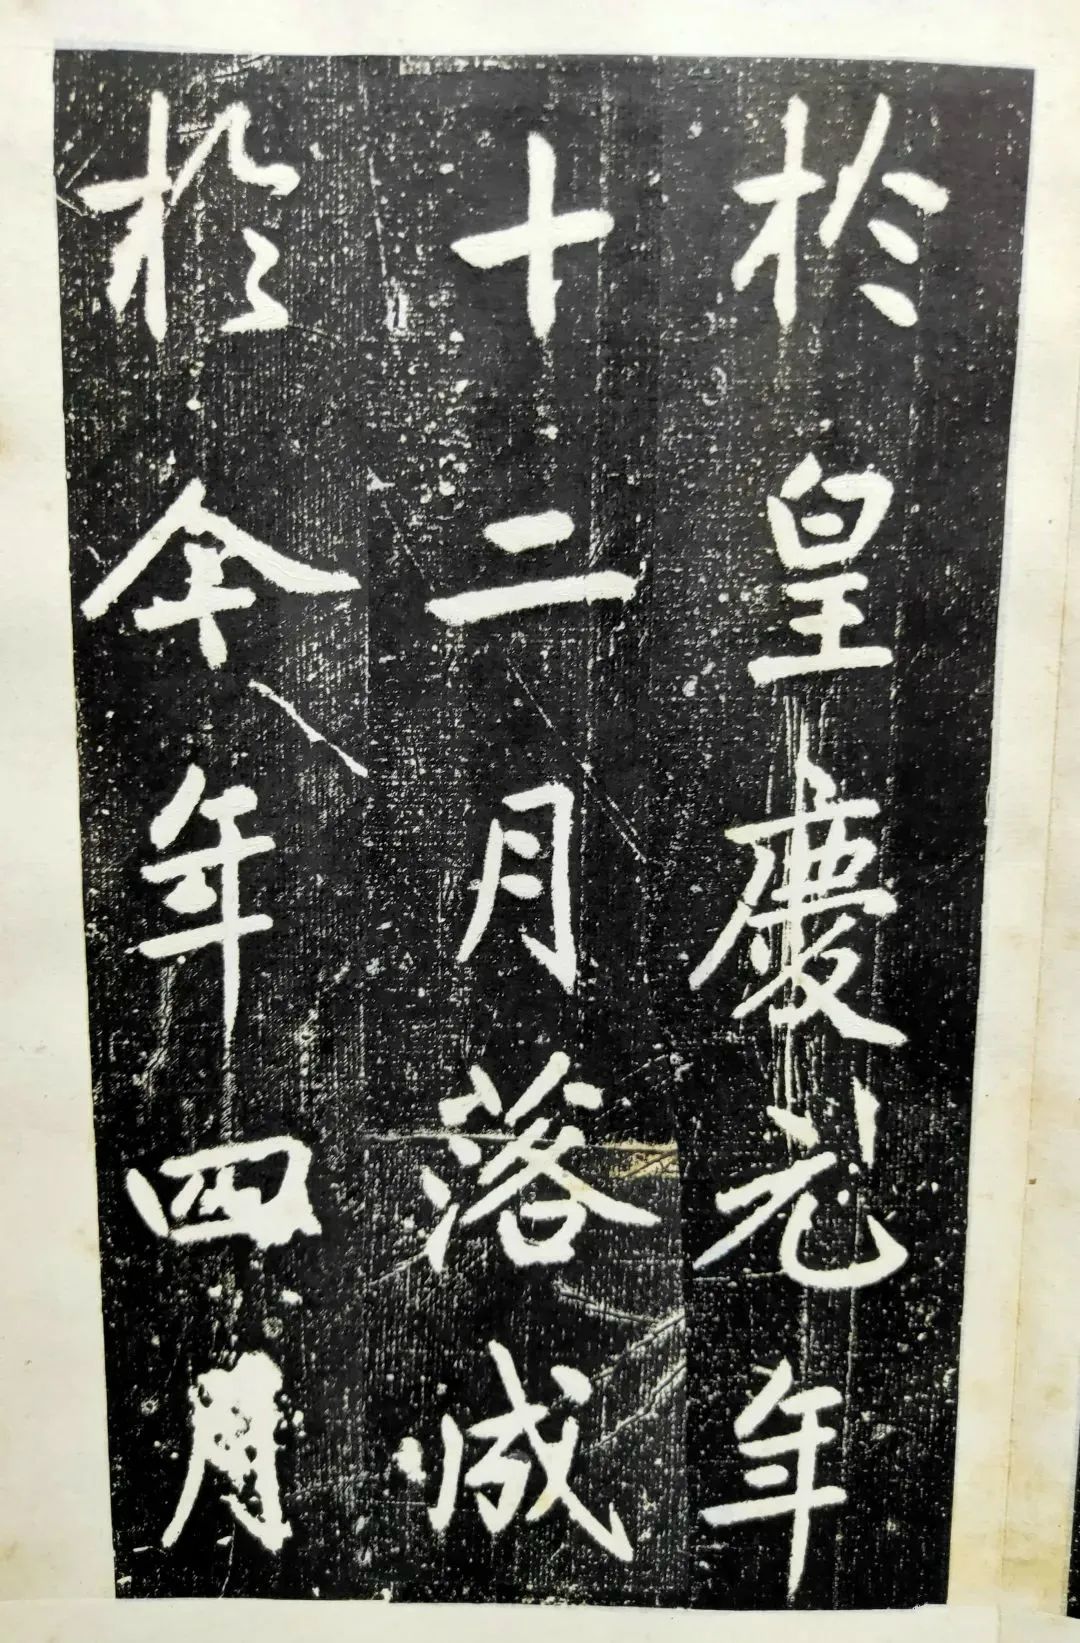 於皇慶元年
十二月落成
於今年四月